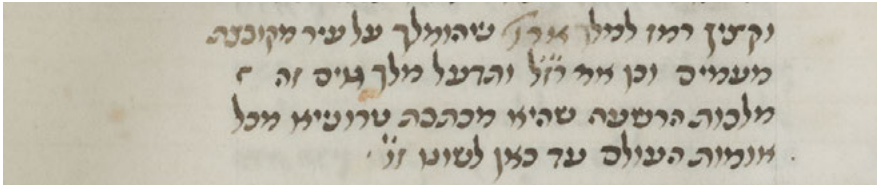 וקצין רמז למלך ארן שיהומלך על עיר מקובצת
מעמים וכן אמ׳ רז״ל ותדעל מלך גוים זה
מלכות הרשעה שהיא מכתבת טרוניא מכל
אומות העולם עד כאן לשונו ז״ל